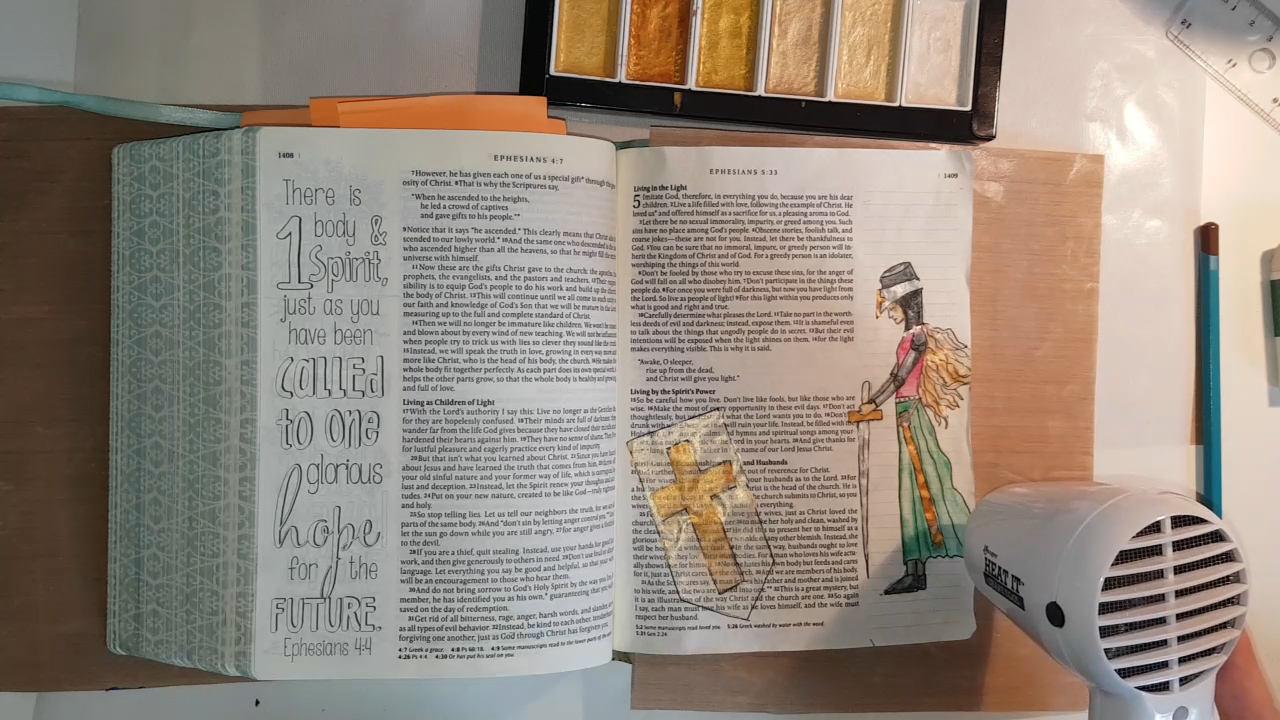 1408
EPHESIANS 4:7
There is
1 body &
Spirit,
just as you
have been
CALLED
to one
glorious
hope
for the
FUTURE.
Ephesians 4:4
7However, he has given each one of us a special gift* through the
osity of Christ. 8That is why the Scriptures say,
"When he ascended to the heights,
he led a crowd of captives
and gave gifts to his people."*
9Notice that it says "he ascended." This clearly means that Christ
scended to our lowly world.* 10And the same one who descended is the
who ascended higher than all the heavens, so that he might fill the
universe with himself.
11Now these are the gifts Christ gave to the church: the
prophets, the evangelists, and the pastors and teachers. 12Their
sibility is to equip God's people to do his work and build up the
the body of Christ. 13This will continue until we all come to such
our faith and knowledge of God's Son that we will be mature in the
measuring up to the full and complete standard of Christ.
14Then we will no longer be immature like children. We won't be
and blown about by every wind of new teaching. We will not be
when people try to trick us with lies so clever they sound like the
15Instead, we will speak the truth in love, growing in every way
more like Christ, who is the head of his body, the church. 16He makes the
whole body fit together perfectly. As each part does its own special work,
helps the other parts grow, so that the whole body is healthy and growing
and full of love.
Living as Children of Light
17With the Lord's authority I say this: Live no longer as the Gentiles
for they are hopelessly confused. 18Their minds are full of darkness;
wander far from the life God gives because they have closed their minds
hardened their hearts against him. 19They have no sense of shame. They
for lustful pleasure and eagerly practice every kind of impurity.
20But that isn't what you learned about Christ. 21Since you have
about Jesus and have learned the truth that comes from him,
your old sinful nature and your former way of life, which is corrupted
lust and deception. 23Instead, let the Spirit renew your thoughts and
tudes. 24Put on your new nature, created to be like God—truly righteous
and holy.
25So stop telling lies. Let us tell our neighbors the truth, for we are
parts of the same body. 26And "don't sin by letting anger control you."*
let the sun go down while you are still angry, 27for anger gives a foothold
to the devil.
28If you are a thief, quit stealing. Instead, use your hands for good
work, and then give generously to others in need. 29Don't use foul or
language. Let everything you say be good and helpful, so that your
will be an encouragement to those who hear them.
30And do not bring sorrow to God's Holy Spirit by the way you
member, he has identified you as his own,* guaranteeing that you
saved on the day of redemption.
31Get rid of all bitterness, rage, anger, harsh words, and slander,
as all types of evil behavior. 32Instead, be kind to each other,
forgiving one another, just as God through Christ has forgiven you.
4:7 Greek a grace. 4:8 Ps 68:18. 4:9 Some manuscripts read to the lower parts of the
4:26 Ps 4:4. 4:30 Or has put his seal on you.
EPHESIANS 5:33
1409
Living in the Light
5 Imitate God, therefore, in everything you do, because you are his dear
children. 2Live a life filled with love, following the example of Christ. He
loved us* and offered himself as a sacrifice for us, a pleasing aroma to God.
3Let there be no sexual immorality, impurity, or greed among you. Such
sins have no place among God's people. 4Obscene stories, foolish talk, and
coarse jokes—these are not for you. Instead, let there be thankfulness to
God. 5You can be sure that no immoral, impure, or greedy person will in-
herit the Kingdom of Christ and of God. For a greedy person is an idolater,
worshiping the things of this world.
6Don't be fooled by those who try to excuse these sins, for the anger of
God will fall on all who disobey him. 7Don't participate in the things these
people do. 8For once you were full of darkness, but now you have light from
the Lord. So live as people of light! 9For this light within you produces only
what is good and right and true.
10Carefully determine what pleases the Lord. 11Take no part in the worth-
less deeds of evil and darkness; instead, expose them. 12It is shameful even
to talk about the things that ungodly people do in secret. 13But their evil
intentions will be exposed when the light shines on them, 14for the light
makes everything visible. This is why it is said,
"Awake, O sleeper,
rise up from the dead,
and Christ will give you light."
Living by the Spirit's Power
15So be careful how you live. Don't live like fools, but like those who are
wise. 16Make the most of every opportunity in these evil days. 17Don't act
thoughtlessly, but what the Lord wants you to do. 18Don't
drunk will ruin your life. Instead, be filled with the
Holy and hymns and spiritual songs among your
Lord in your hearts. 20And give thanks for
name of our Lord Jesus Christ.
and Husbands
out of reverence for Christ.
husbands as to the Lord. 23For
Christ is the head of the church. He is
the church submits to Christ, so you
everything.
your wives, just as Christ loved the
church. to make her holy and clean, washed by
the He did this to present her to himself as a
glorious or any other blemish. Instead, she
will be In the same way, husbands ought to love
their bodies. For a man who loves his wife actu-
ally shows hates his own body but feeds and cares
for it, just as Christ cares for the church. 30And we are members of his body.
31As the Scriptures say, father and mother and is joined
to his wife, and the two are united into one."* 32This is a great mystery, but
it is an illustration of the way Christ and the church are one. 33So again
I say, each man must love his wife as he loves himself, and the wife must
respect her husband.
5:2 Some manuscripts read loved you. 5:26 Greek washed by water with the word.
5:31 Gen 2:24.
HEAT IT